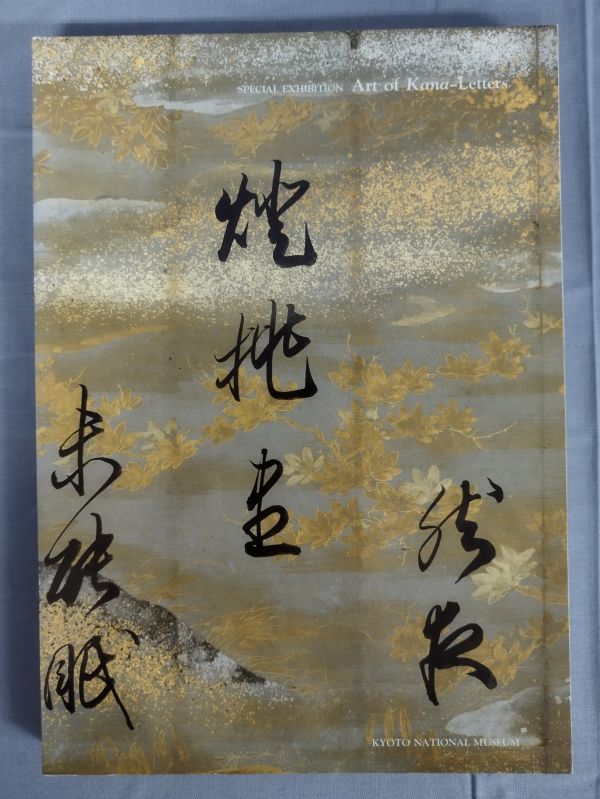 SPECIAL EXHIBITION Art of Kana-Letters
然秋
燈挑盡
未能眠
KYOTO NATIONAL MUSEUM